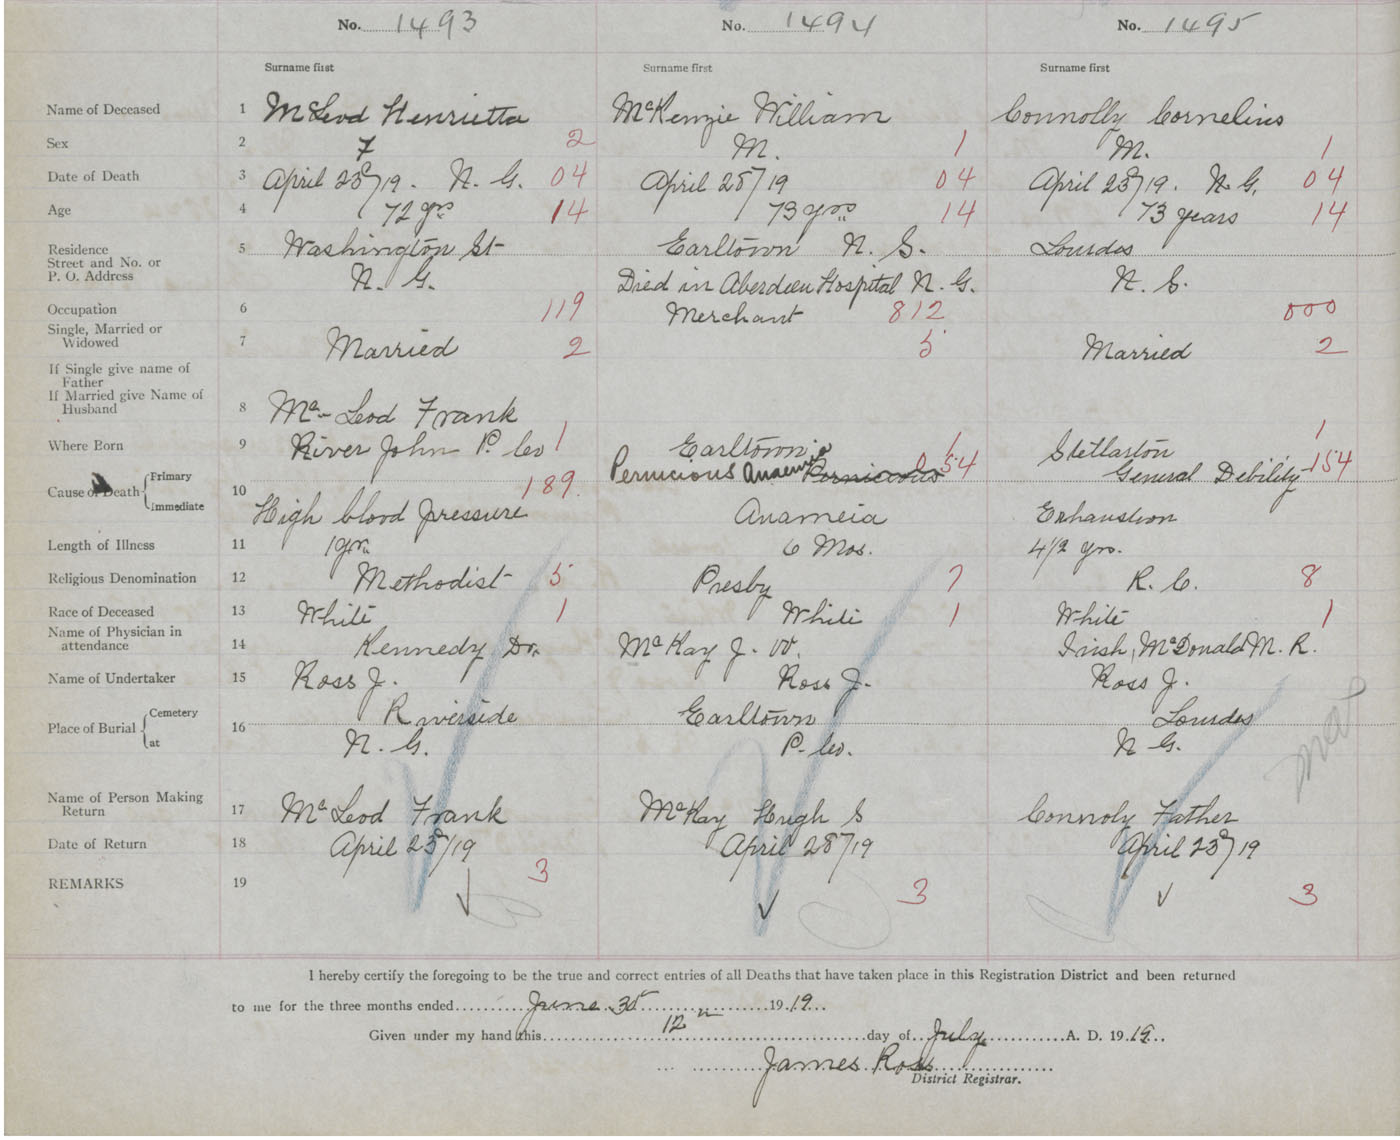 No. 1493 No. 1494 No. 1495
Surname first Surname first Surname first
Name of Deceased 1 McLeod Henrietta McKenzie William Connolly Cornelius
Sex 2 F 2 M. 1 M. 1
Date of Death 3 April 23/19. N. G. 04 April 28/19 04 April 23/19. N. G. 04
Age 4 72 yrs 14 73 yrs 14 73 years 14
Residence 5 Washington St Earltown N. S. Lourdes
Street and No. or
P. O. Address N. G. Died in Aberdeen Hospital N. G. N. S.
Occupation 6 119 Merchant 812 000
Single, Married or
Widowed 7 Married 2 5 Married 2
If Single give name of
Father
If Married give Name of
Husband 8 Mc-Leod Frank
Where Born 9 River John P. Co 1 Earltown 1 Stellarton 1
Cause of Death Primary 10 189. Pernicious Anaemia Pernicious 054 General Debility 154
Immediate High blood pressure Anameia Exhaustion
Length of Illness 11 1 yr. 6 Mos. 4 1/2 yrs.
Religious Denomination 12 Methodist 5 Presby 7 R. C. 8
Race of Deceased 13 White 1 White 1 White 1
Name of Physician in
attendance 14 Kennedy Dr. McKay J. W. Irish, McDonald M. R.
Name of Undertaker 15 Ross J. Ross J. Ross J.
Place of Burial Cemetery 16 Riverside Earltown Lourdes
at N. G. P. Co. N G.
Name of Person Making
Return 17 McLeod Frank McKay Hugh S Connoly Father
Date of Return 18 April 23/19 April 28/19 April 23/19
REMARKS 19 3 3 3
I hereby certify the foregoing to be the true and correct entries of all Deaths that have taken place in this Registration District and been returned
to me for the three months ended June 30 1919
Given under my hand this 12th day of July A. D. 1919
James Ross
District Registrar.